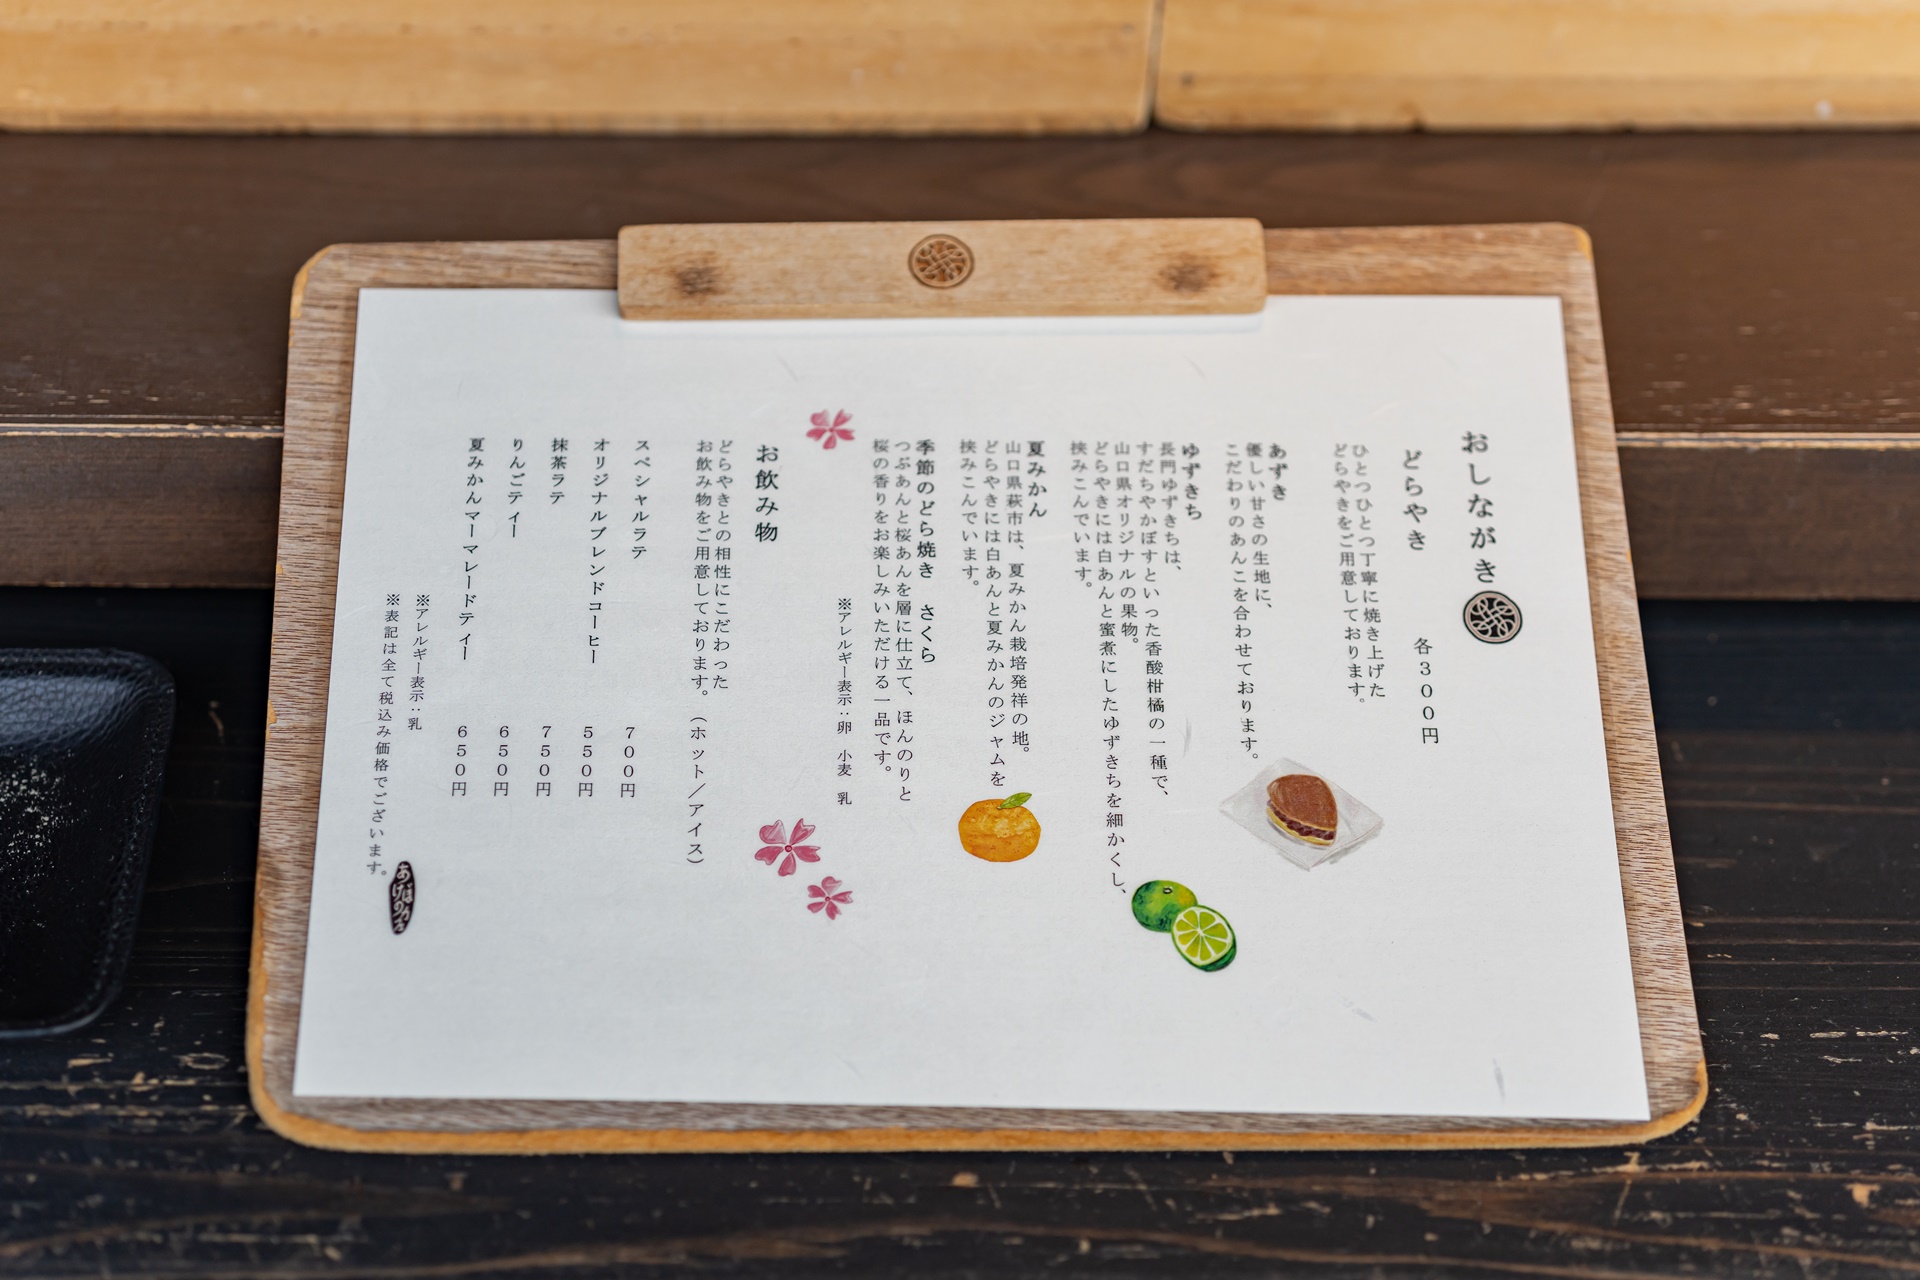 おしながき
どらやき 各300円
ひとつひとつ丁寧に焼き上げた
どらやきをご用意しております。
あずき
優しい甘さの生地に、
こだわりのあんこを合わせております。
ゆずきち
長門ゆずきちは、
すだちやかぼすといった香酸柑橘の一種で、
山口県オリジナルの果物。
どらやきには白あんと蜜煮にしたゆずきちを細かくし、
挟みこんでいます。
夏みかん
山口県萩市は、夏みかん栽培発祥の地。
どらやきには白あんと夏みかんのジャムを
挟みこんでいます。
季節のどら焼き さくら
つぶあんと桜あんを層に仕立て、ほんのりと
桜の香りをお楽しみいただける一品です。
※アレルギー表示:卵 小麦 乳
お飲み物
どらやきとの相性にこだわった
お飲み物をご用意しております。(ホット/アイス)
スペシャルラテ 700円
オリジナルブレンドコーヒー 550円
抹茶ラテ 750円
りんごティー 650円
夏みかんマーマレードティー 650円
※アレルギー表示:乳
※表記は全て税込み価格でございます。
あけぼのカフェ